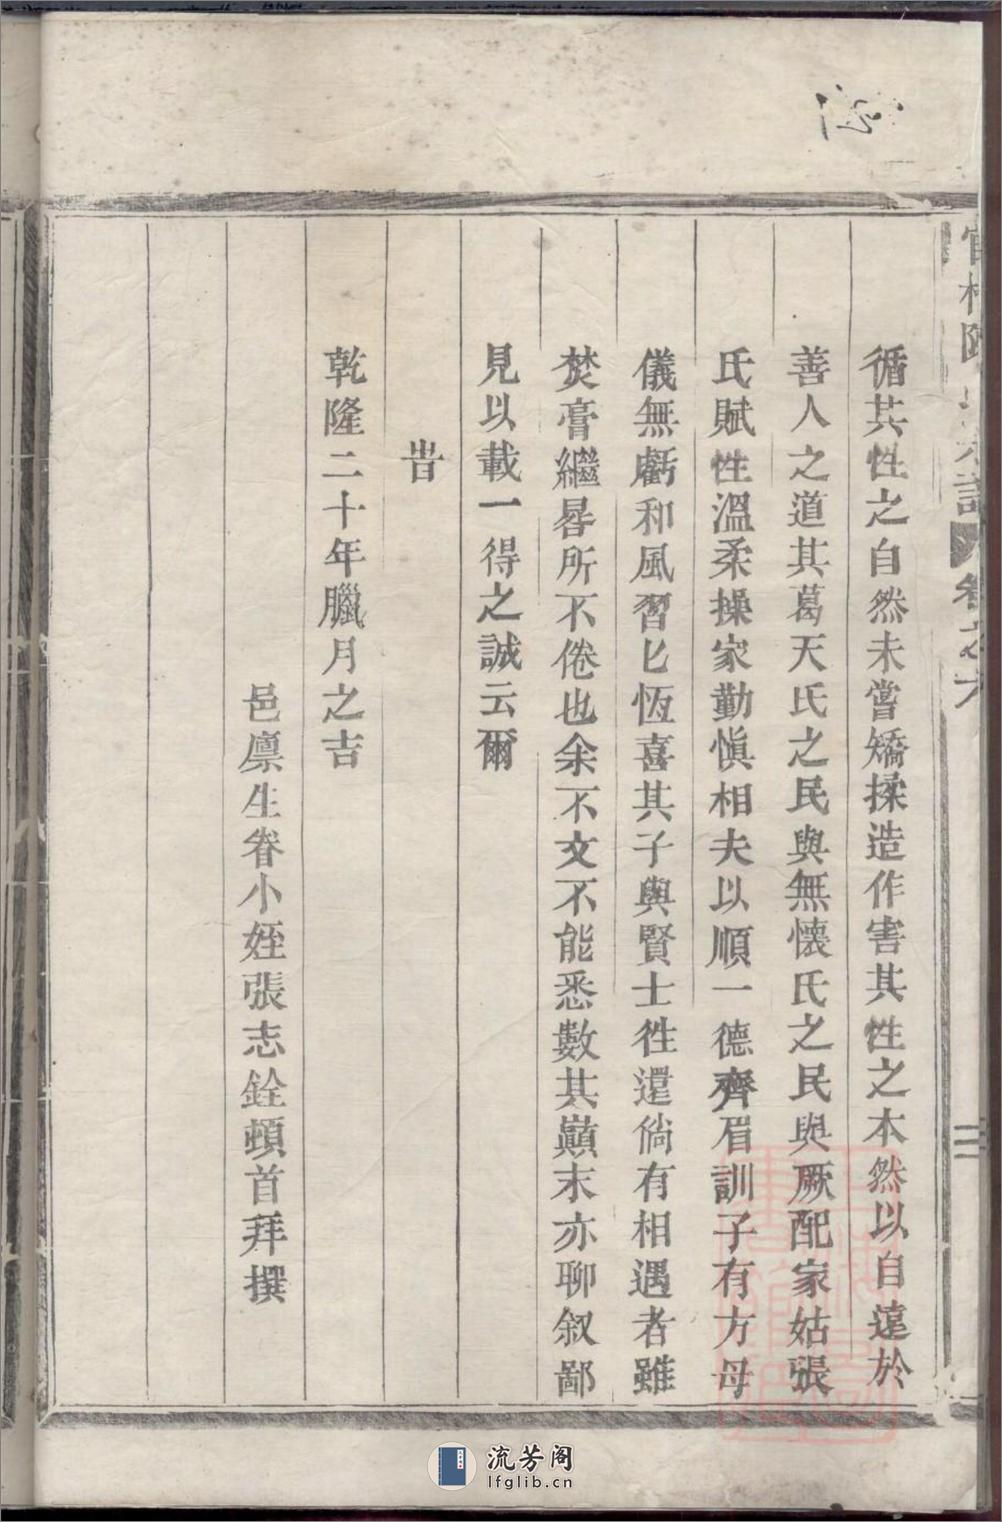 循其性之自然未嘗矯揉造作害其性之本然以自遠於
善人之道其葛天氏之民與無懷氏之民與厥配家姑張
氏賦性溫柔操家勤慎相夫以順一德齊眉訓子有方母
儀無虧和風習匕恆喜其子與賢士徃還倘有相遇者雖
焚膏繼晷所不倦也余不文不能悉數其巔末亦聊叙鄙
見以載一得之誠云爾
旹
乾隆二十年臘月之吉
邑廩生眷小姪張志銓頓首拜撰
卷之六
流芳阁
lfglib.cn